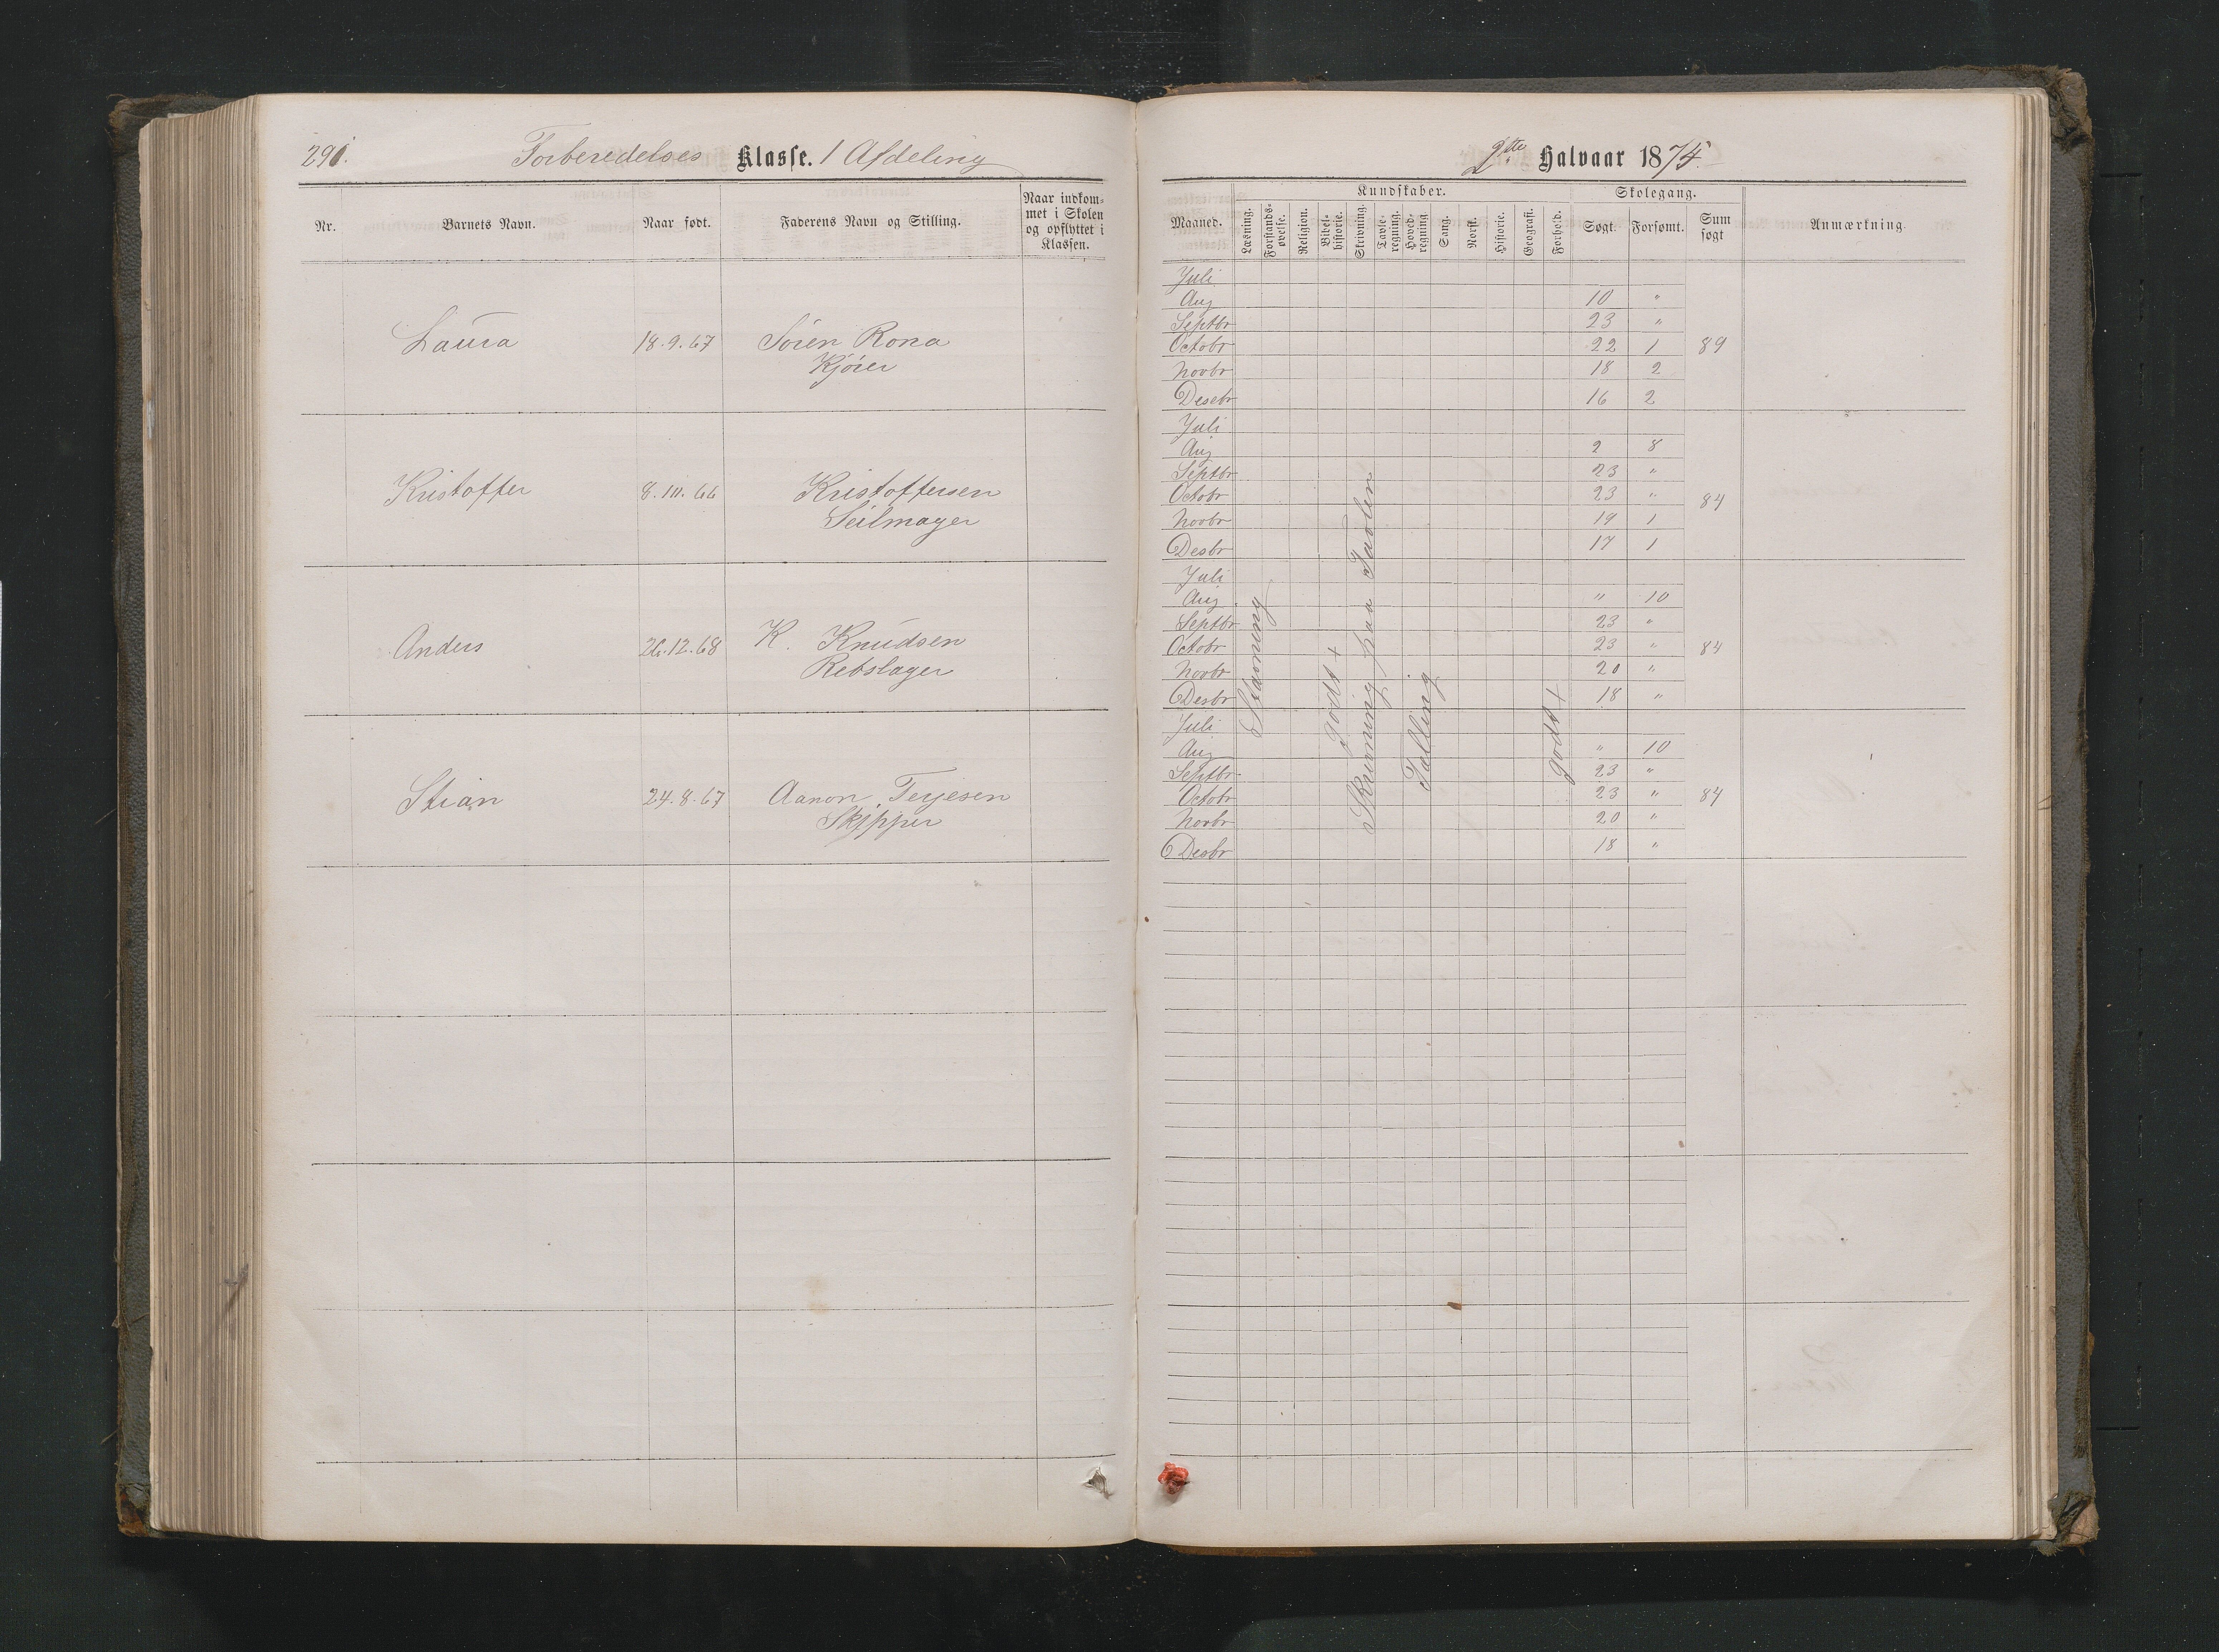 291.
Forberedelses Klasse. 1 Afdeling
Nr.
Barnets Navn.
Naar født.
Faderens Navn og Stilling.
Naar indkom-
met i Skolen
og opflyttet i
Klassen.
Laura 18.9.67 Søren Rona
Kjører
Kristoffer 8.10.66 Kristoffersen
Seilmager
Anders 26.12.68 K. Knudsen
Rebslager
Stian 24.8.67 Aanon Terjesen
Skipper
2det Halvaar 1875.
Maaned.
Kundskaber.
Læsning.
Forstands-
øvelse.
Religion.
Bibel-
historie.
Skrivning.
Tavle-
regning.
Hoved-
regning.
Sang.
Norsk.
Historie.
Geografi.
Forhold.
Skolegang.
Søgt.
Forsømt.
Sum
søgt
Anmærkning.
Juli
Aug 10 "
Septbr 23 "
Octobr 22 1 89
Novbr 18 2
Desebr 16 2
Juli
Aug 2 8
Septbr 23 "
Octobr 23 " 84
Novbr 19 1
Desbr 17 1
Juli
Aug " 10
Septbr 23 "
Octobr 23 " 84
Novbr 20 "
Desbr 18 "
Juli
Aug " 10
Septbr 23 "
Octobr 23 " 84
Novbr 20 "
Desbr 18 "
Stavning
godt +
Skrivning paa Tavlen
Talling
godt +